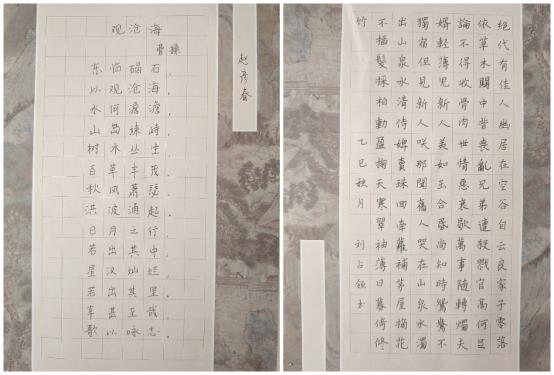 观沧海
曹操
东临碣石，
以观沧海。
水何澹澹，
山岛竦峙。
树木丛生，
百草丰茂。
秋风萧瑟，
洪波涌起。
日月之行，
若出其中。
星汉灿烂，
若出其里。
幸甚至哉，
歌以咏志。
赵彦
绝代有佳人幽居在空谷自云良家子零落
依草木關中昔喪亂兄弟遭殺戮官高何足
論不得收骨肉世情惡衰歇萬事隨轉燭夫
婿輕薄兒新人美如玉合昏尚知時鴛鴦不
獨宿但見新人咲那聞舊人哭在山泉水濁
出山泉水清侍婢賣珠回牽蘿補茅屋摘花
不插髮採柏動盈掬天寒翠袖薄日暮倚修
竹 乙巳秋月 刘占领书